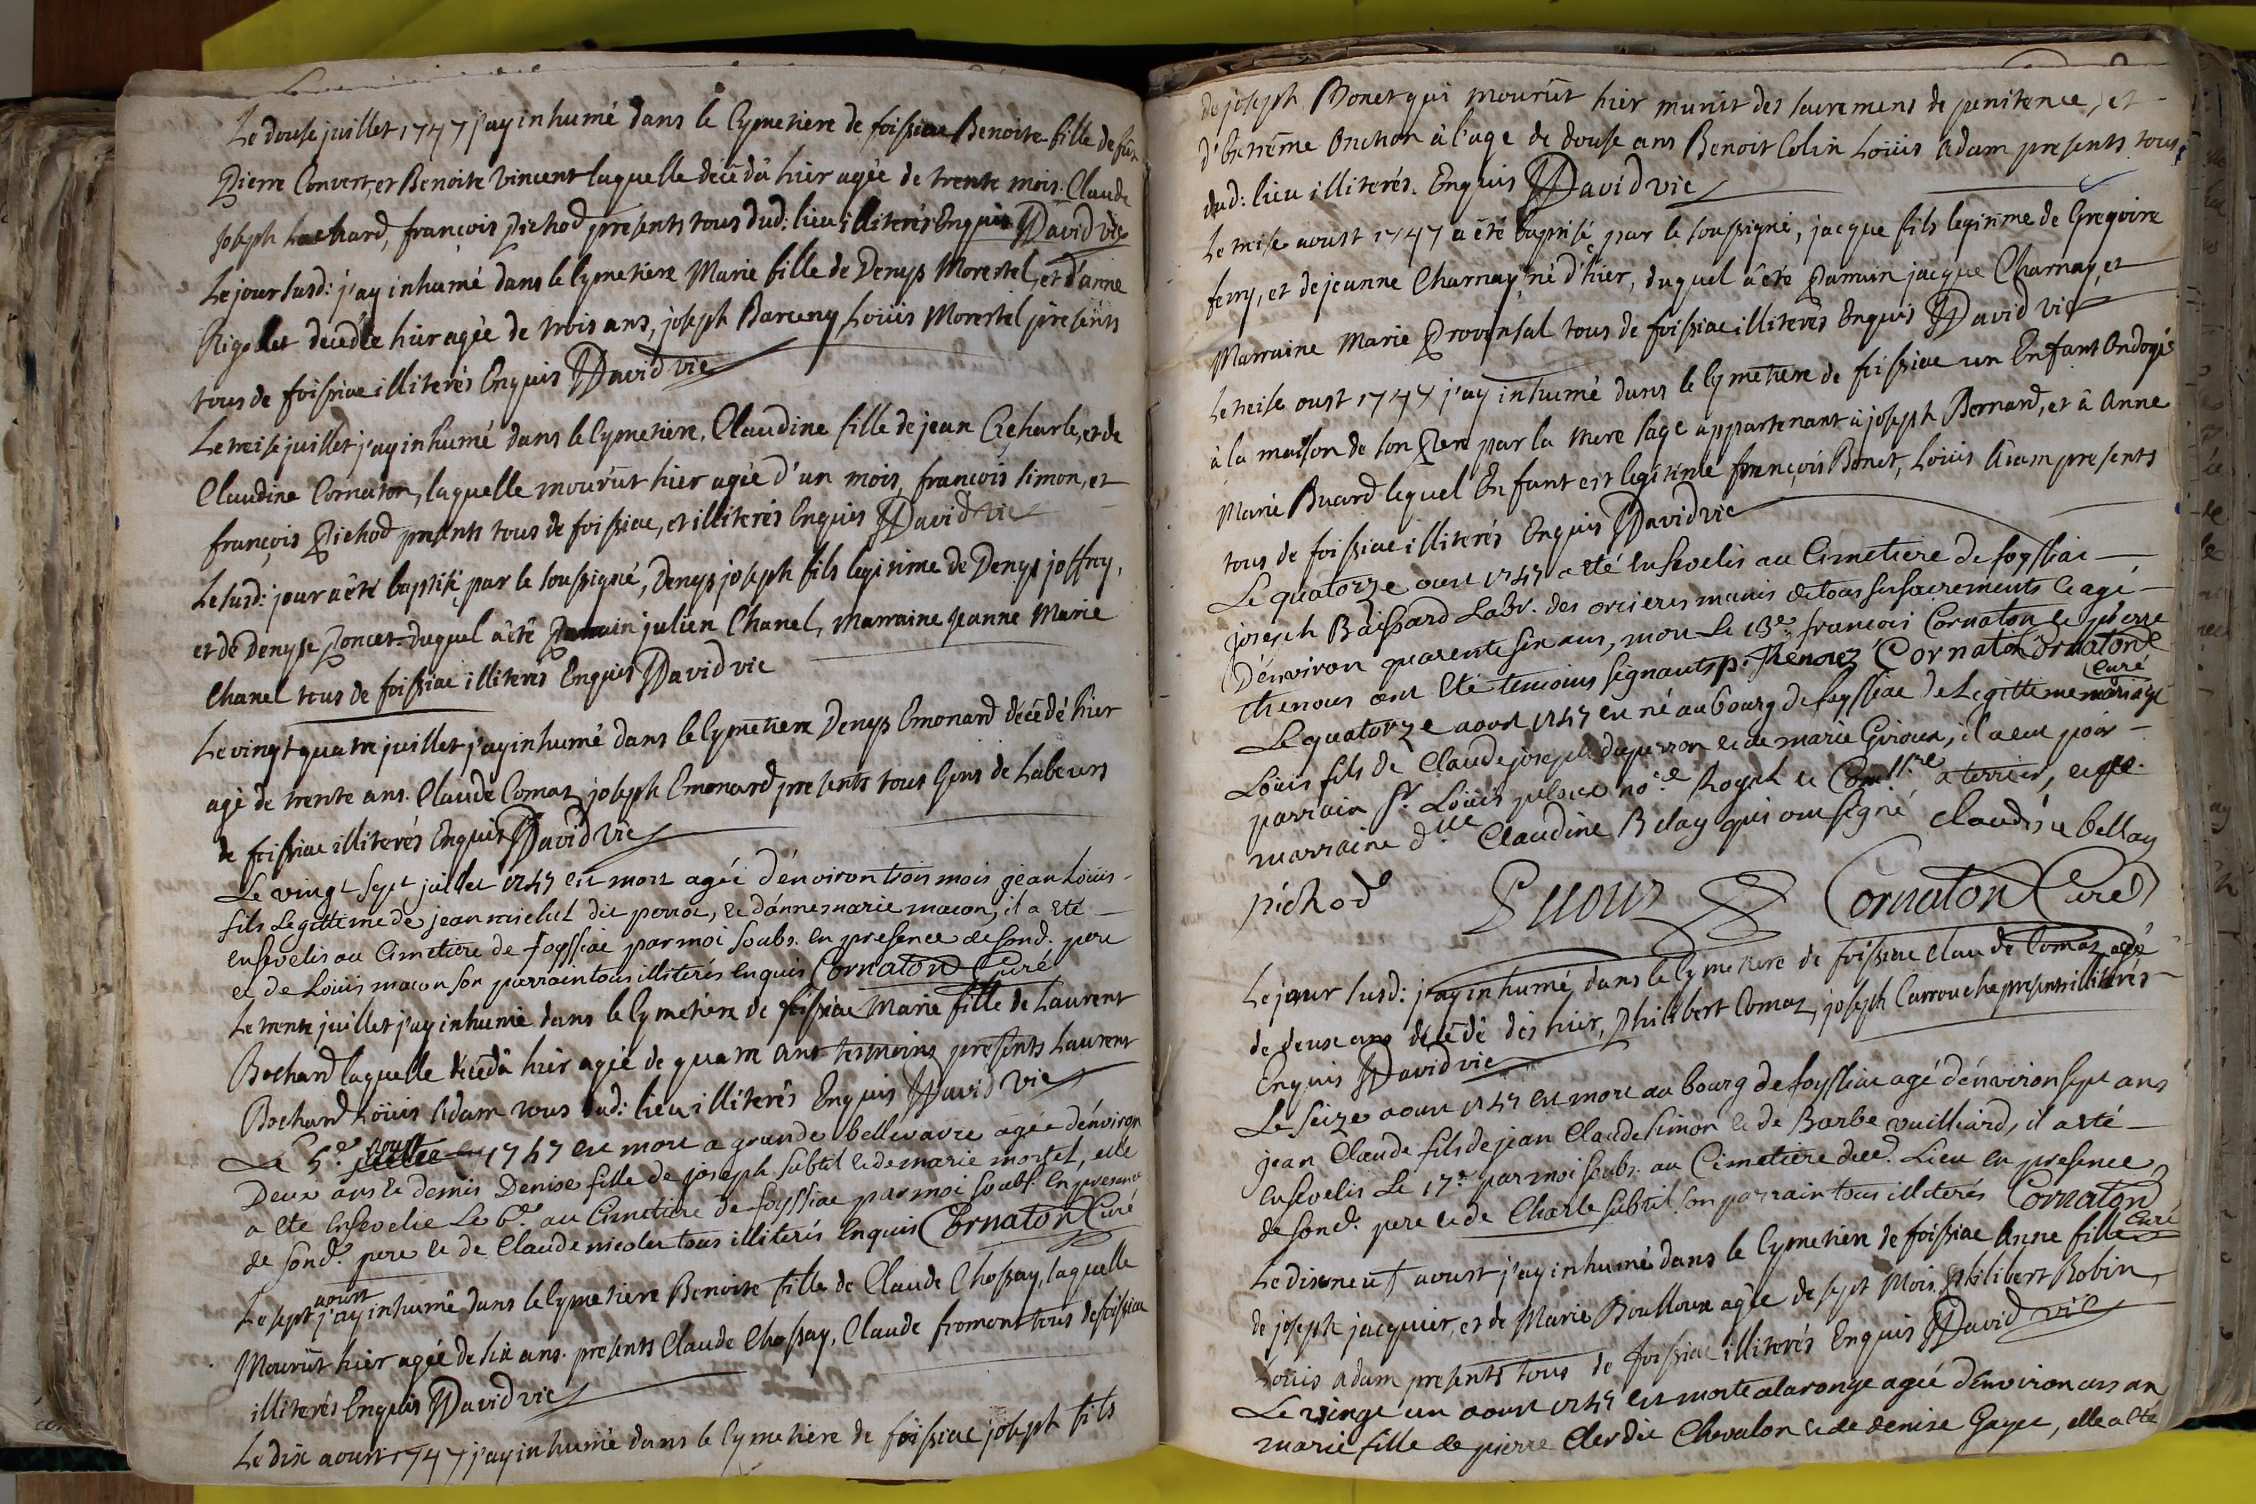 Le douse juillet 1747 j'ay inhumé dans le Cymetiere de foissiac Benoite fille de feu
Pierre Convert, et Benoite Vincent laquelle décédâ hier agée de trente mois. Claude
Joseph Lochard, françois Pichod presents tous dud: lieu illiterés Enquis David vic
Le jour susd: j'ay inhumé dans le Cymetiere Marie fille de Denys Morestel, et d'anne
Rigollet decedée hier agée de trois ans, joseph Barceny Loüis Morestel présents
tous de foissiac illiterés Enquis David vic
Le treise juillet j'ay inhumé dans le Cymetiere, Claudine fille de jean Cheharle, et de
Claudine Cornaton, laquelle mourût hier agée d'un mois, françois Simon, et
françois Pichod presents tous de foissiac, et illiterés Enquis David vic
Le susd: jour â êté baptisé par le soussigné, Denys joseph fils legitime de Denys joffray,
et de Denyse Poncet duquel â êté Parrain julien Chanel, Marraine Jeanne Marie
Chanel tous de foissiac illiterés Enquis David vic
Le vingt quatre juillet j'ay inhumé dans le Cymetiere Denys Emonard décédé hier
agé de trente ans. Claude Comas, joseph Emonard presents tous Gens de Labeurs
de foissiac illiterés Enquis David vic
Le vingt sept juillet 1747 est mort agée d'environ trois mois jean Loüis
fils Legittime de jean michel dit perrot, et d'anne marie macon, il a eté
ensevelis au Cimetiere de foyssiac par moi soubs. en presence de sond. pere
et de Loüis macon son parrain tous illiterés enquis Cornaton Curé
Le trente juillet j'ay inhumé dans le Cymetiere de foissiac Marie fille de Laurent
Bochard laquelle décédâ hier agée de quatre ans tesmoins presents Laurent
Bochard Loüis Adam tous dud: lieu illiterés Enquis David vic
Le 5e aoust 1747 est mort a grande bellevavre agée d'environ
Deux ans et demis Denise fille de joseph subtil et de marie mortel, elle
a eté Ensevelie Le 6e au Cimetiere de foyssiac par moi soubs. En presence
de sond. pere et de Claude nicolet tous illiterés Enquis Cornaton Curé
Le sept aoust j'ay inhumé dans le Cymetiere Benoite fille de Claude Chossay, laquelle
Mourût hier agée de six ans. presents Claude Chossay, Claude fromont tous de foissiac
illiterés Enquis David vic
Le dix aoust 1747 j'ay inhumé dans le Cymetiere de foissiac joseph fils
de joseph Bonet qui mourût hier munit des sacremens de penitence, et
d'Extrême Onction à l'age de douse ans Benoit Colin Loüis Adam presents tous
dud: lieu illiterés. Enquis David vic
Le treise aoust 1747 a êté baptisé par le soussigné, jacque fils legitime de Gregoire
ferry, et de jeanne Charnay, né d'hier, duquel â êté Parrain jacque Charnay, et
Marraine Marie Provensal tous de foissiac illiterés Enquis David vic
Le treise oust 1747 j'ay inhumé dans le Cymetiere de foissiac un Enfant Ondoyé
à la maison de son Pere par la Mere sage appartenant à joseph Bernard, et â Anne
Marie Buard lequel Enfant est legitime françois Bonet, Loüis Adam presents
tous de foissiac illiterés Enquis David vic
Le quatorze aout 1747 a eté Ensevelis au Cimetiere de foyssiac
joseph Baissard Labr. des orcieres munis de tous ses sacrements et agé
D'environ quarente six ans, mort Le 13e francois Cornaton et pierre
thenoux ont eté temoins signants p. Thenouz Cornaton Cornaton Curé
Le quatorze aout 1747 est né au bourg de foyssiac de Legittime mariage
Loüis fils de Claude joseph duperron et de marie Giroux, il a eut pour
parrain Sr. Loüis puloux noe. Royal et Commre. a terrier, et pr.
marraine dlle Claudine Belay qui ont signé claudine bellay
pichod Puoux Cornaton Curé
Le jour susd: j'ay inhumé dans le Cymetiere de foissiac Claude Comas agé
de deux ans décédé dès hier, Philibert Comas, joseph Carrouche presents illiterés
Enquis David vic
Le seize aout 1747 est mort au bourg de foyssiac agé d'environ sept ans
jean Claude fils de jean Claude simon et de Barbe vuilliard, il a eté
ensevelis Le 17e par moi soubs. au Cimetiere dud. Lieu En presence
de sond. pere et de Charle subtil son parrain tous illiterés Cornaton Curé
Le dix neuf aoust j'ay inhumé dans le Cymetiere de foissiac Anne fille
de joseph jacquier, et de Marie Boulloux agée de sept Mois. Philibert Robin,
Loüis Adam presents tous de foissiac illiterés Enquis David vic
Le vingt un aout 1747 est morte a la ronge agée d'environ un an
marie fille de pierre Clerdit Chevalon et de denise Gayet, elle a eté